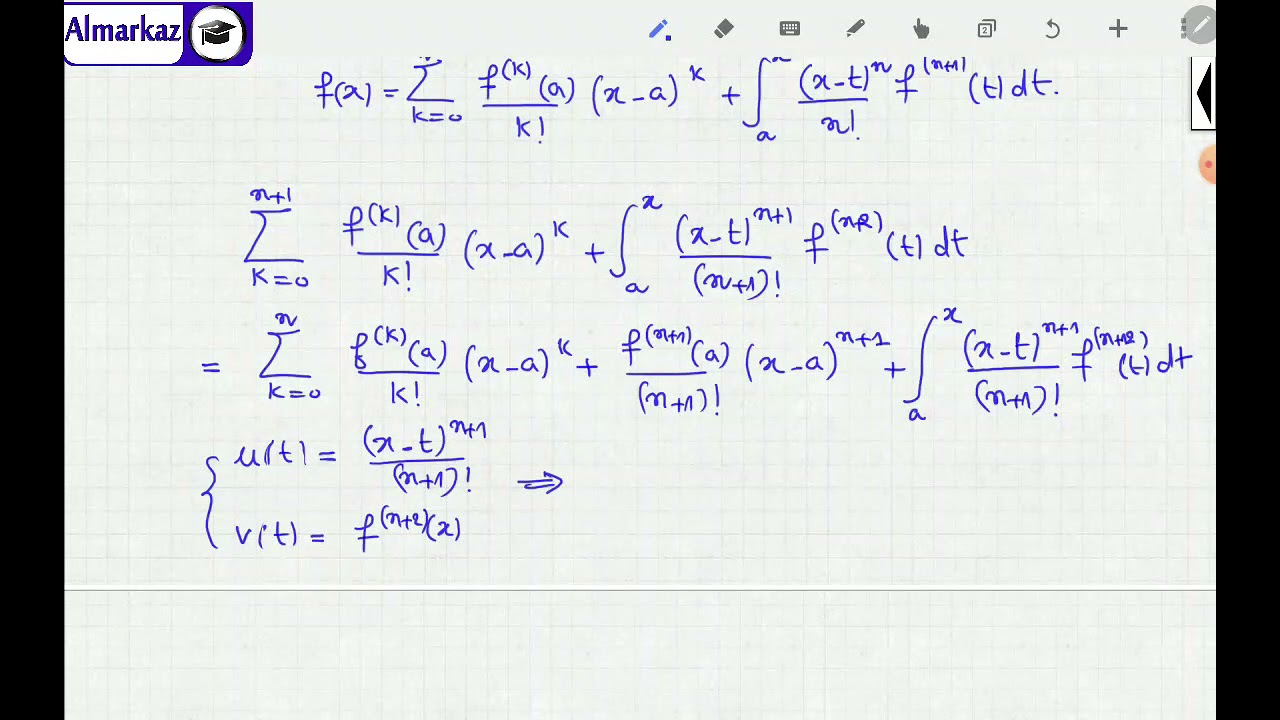 Almarkaz
f(x) = ∑_{k=0} f^{(k)}(a)/k! (x-a)^k + ∫_a^x (x-t)^n/n! f^{(n+1)}(t) dt.
∑_{k=0}^{n+1} f^{(k)}(a)/k! (x-a)^k + ∫_a^x (x-t)^{n+1}/(n+1)! f^{(n+2)}(t) dt
= ∑_{k=0}^{n} f^{(k)}(a)/k! (x-a)^k + f^{(n+1)}(a)/(n+1)! (x-a)^{n+1} + ∫_a^x (x-t)^{n+1}/(n+1)! f^{(n+2)}(t) dt
{ u(t) = (x-t)^{n+1}/(n+1)! ⇒
v(t) = f^{(n+2)}(x)